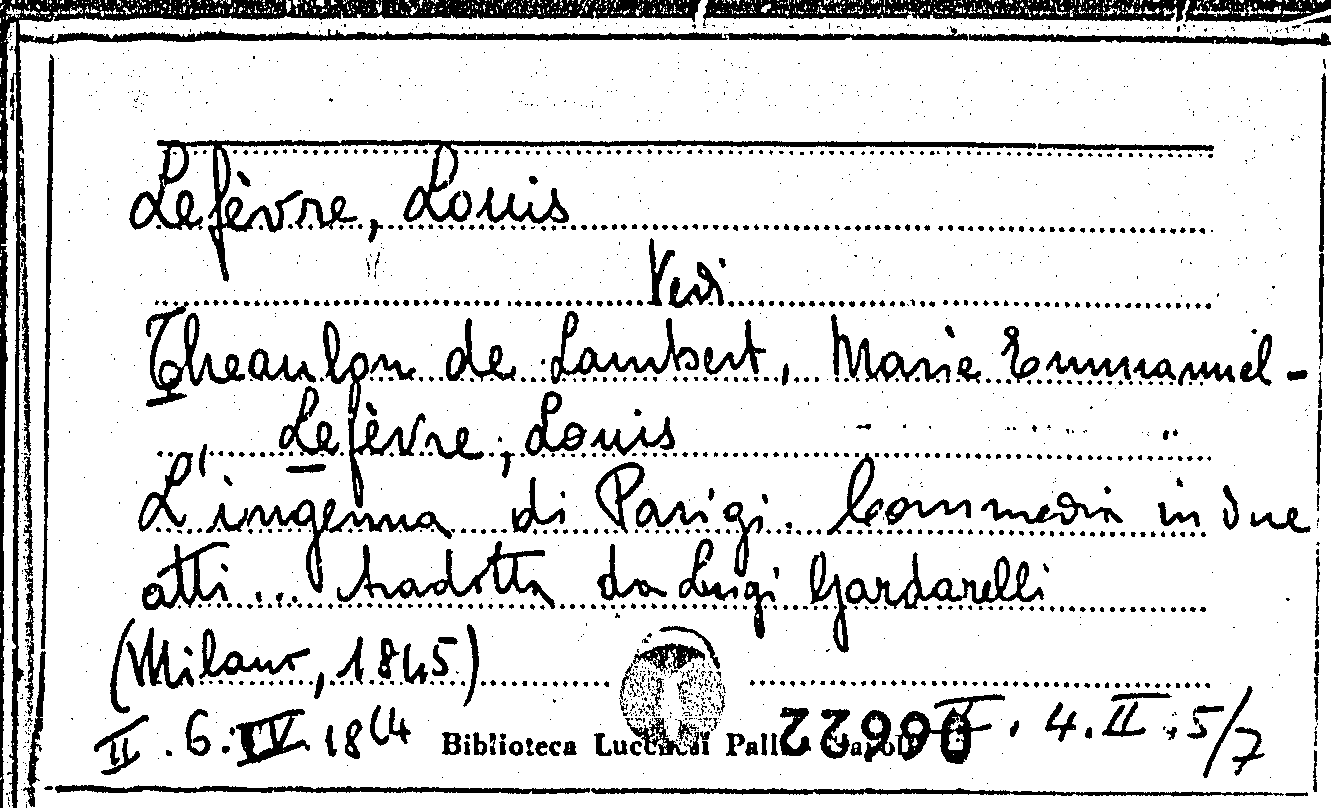 Lefèvre, Louis
Vedi
Theaulon de Lambert, Marie Emmanuel-
Lefèvre, Louis
L'ingenua di Parigi. Commedia in due
atti... tradotta da Luigi Gardarelli
(Milano, 1845)
II.6.IV.18(4 Biblioteca Lucchesi Palli Napoli 22990 II.4.II.5/7